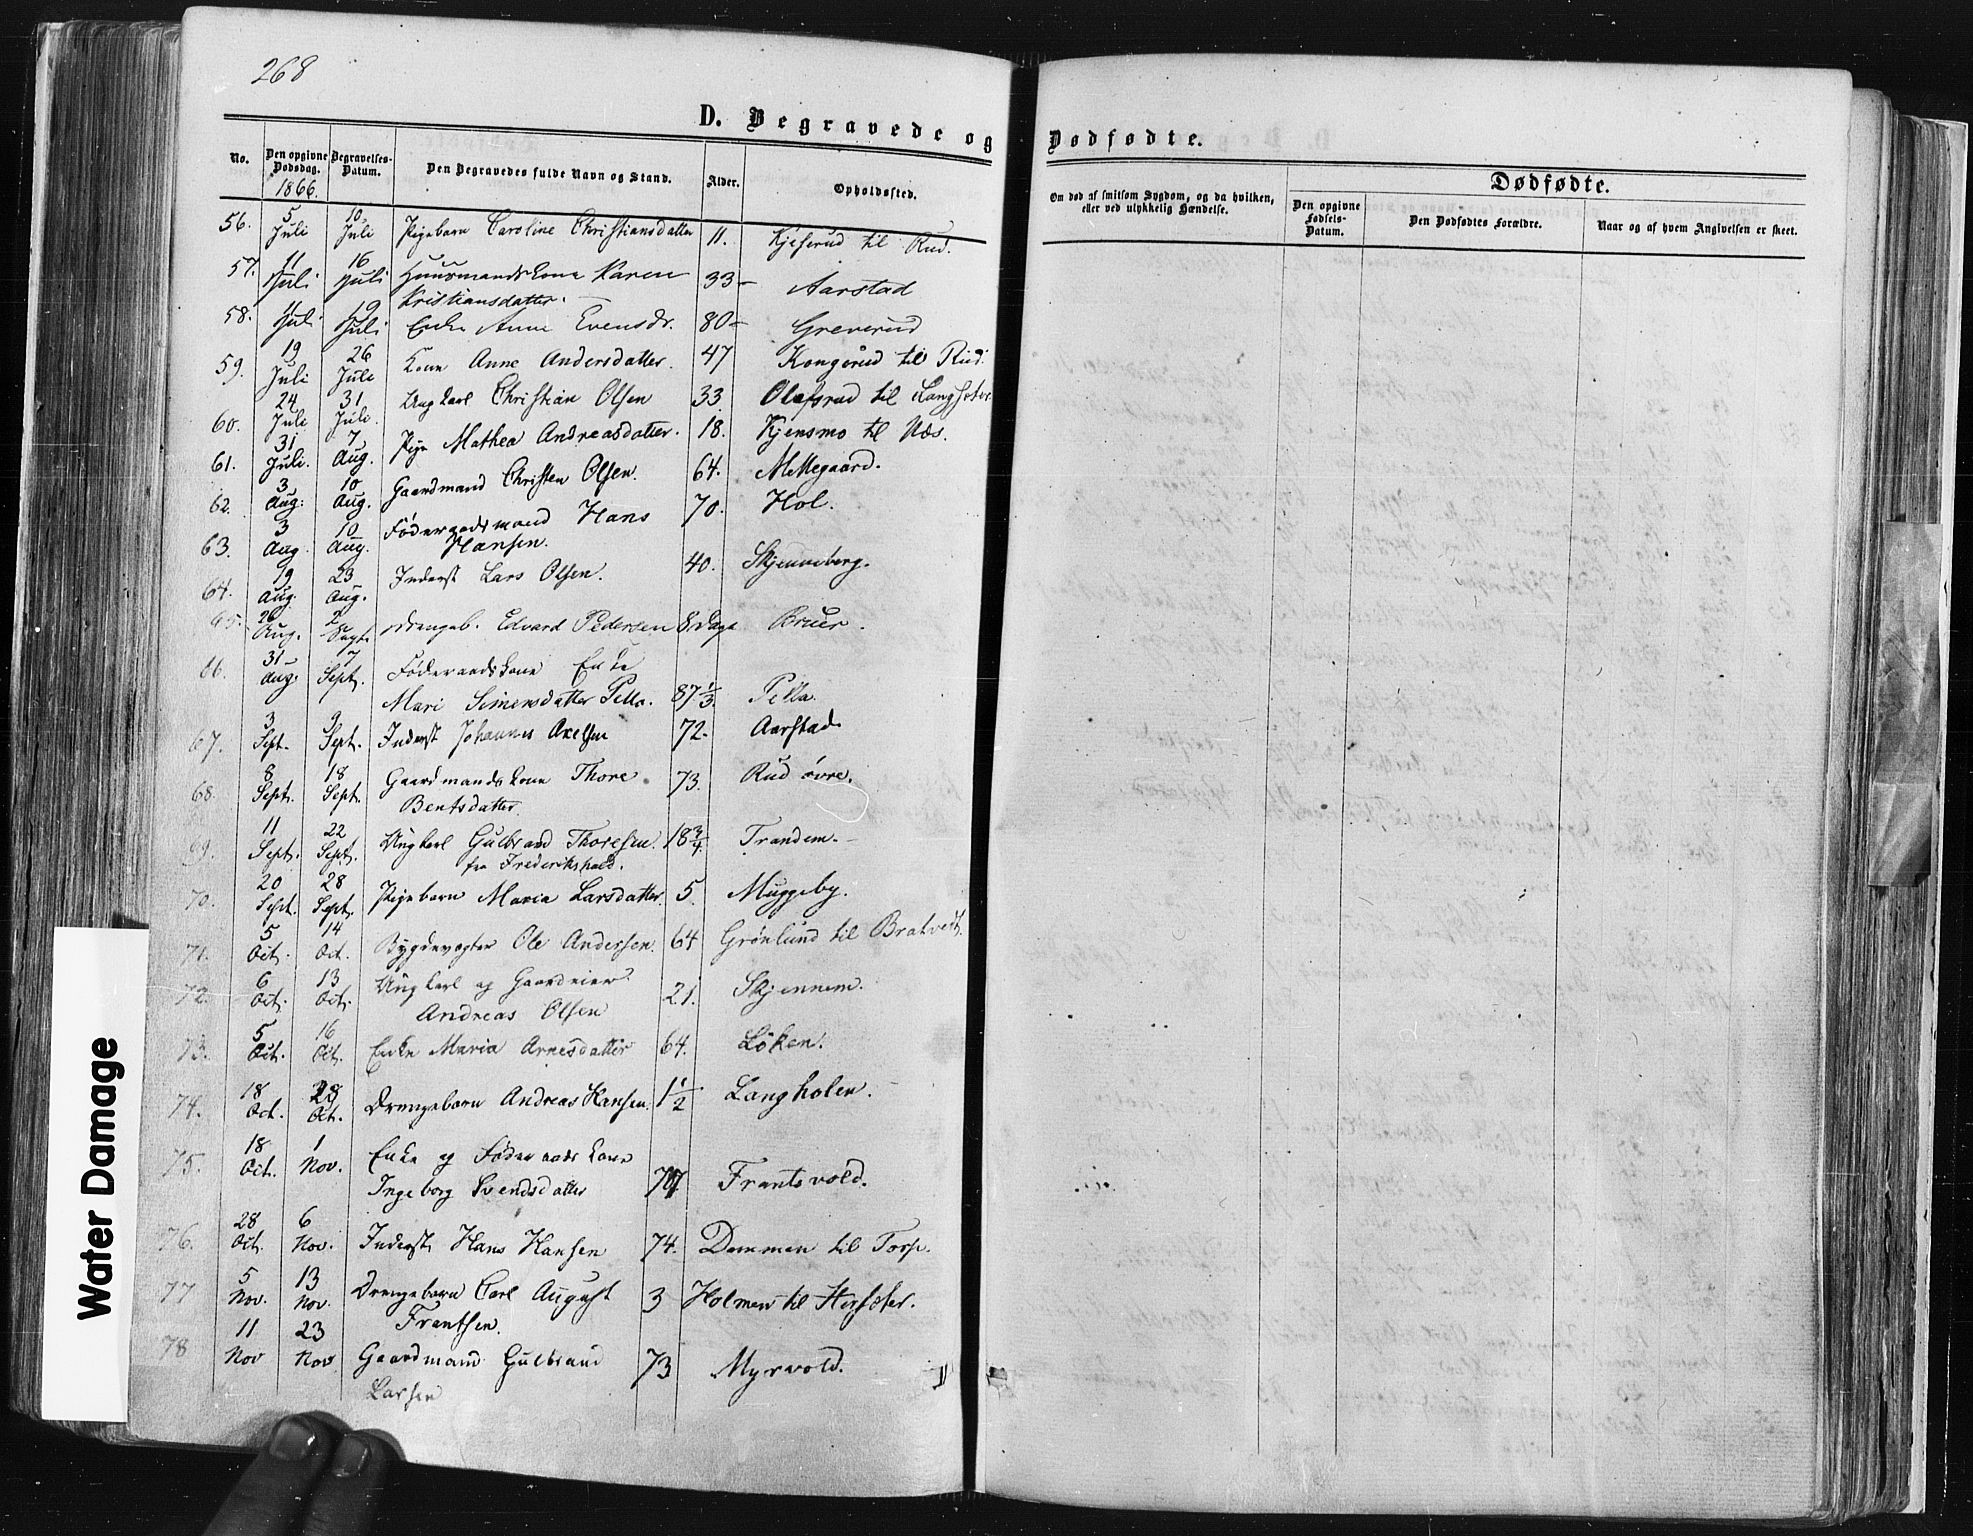 268
D. Begravede og Dødfødte.
No. Den opgivne Dødsdag. 1866. Begravelses-Datum. Den Begravedes fulde Navn og Stand. Alder. Opholdssted.
Om død af smitsom Sygdom, og da hvilken, eller ved ulykkelig Hændelse.
Dødfødte.
Den opgivne Fødsels-Datum. Den Dødfødtes Forældre. Naar og af hvem Angivelsen er skeet.
56. 5 Juli 10 Juli Pigebarn Caroline Christiansdatter 11. Kjeserud til Rud.
57. 11 Juli 16 Juli Huusmandskone Karen 33 – Aarstad
Kristiansdatter.
58. Juli 19 Juli Enke Anne Evensdr. 80 – Greverud
59. 19 Juli 26 Juli Kone Anne Andersdatter. 47 Kongerud til Rud.
60. 24 Juli 31 Juli. Ungkarl Christian Olsen 33 Olafsrud til
61. 31 Juli. 7 Aug. Pige Mathea Andreasdatter. 18. Kjensmo til Næs.
62. 3 Aug: 10 Aug. Gaardmand Christen Olsen. 64. Millegaard.
63. 3 Aug. 10 Aug. Føderaadsmand Hans 70. Hol.
Hansen.
64. 19 Aug. 23 Aug. Inderst Lars Olsen. 40. Skjenneberg.
65. 26 Aug. 2 Sept. Drengeb. Edvard Pedersen 8 Dage Bruer.
66. 31 Aug. 7 Sept. Føderaadskone Enke
Mari Simensdatter Pella. 87 1/3. Pella.
67. 3 Sept. 9 Sept. Inderst Johannes Axelsen 72. Aarstad
68. 8 Sept. 18 Sept. Gaardmandskone Thore 73. Rud øvre.
Bentsdatter.
69. 11 Sept. 22 Sept. Ungkarl Gulbrand Thoresen. 18 3/4. Trandem. –
fra Frederikshald.
70. 20 Sept. 28 Sept. Pigebarn Maria Larsdatter. 5. Muggeby.
71. 5 Oct. 14 Oct. Bygdevægter Ole Andersen. 64 Grønlund til Bratvedt.
72. 6 Oct. 13 Oct. Ungkarl og Gaardeier 21. Skjennem.
Andreas Olsen
73. 5 Oct. 16 Oct. Enke Maria Arnesdatter 64. Löken.
74. 18 Oct. 28 Oct. Drengebarn Andreas Hansen. 1 1/2 Langholen.
75. 18 Oct. 1 Nov. Enke og Føderaadskone
Ingeborg Svendsdatter 77 Frantsvold.
76. 28 Oct. 6 Nov. Inderst Hans Hansen 74. Dammen til Torp.
77 5 Nov. 13 Nov. Drengebarn Carl August 3 Holmen til Hersæter.
Frantsen.
78 11 Nov 23 Nov Gaardmand Gulbrand 73 Myrvold.
Larsen
Water Damage